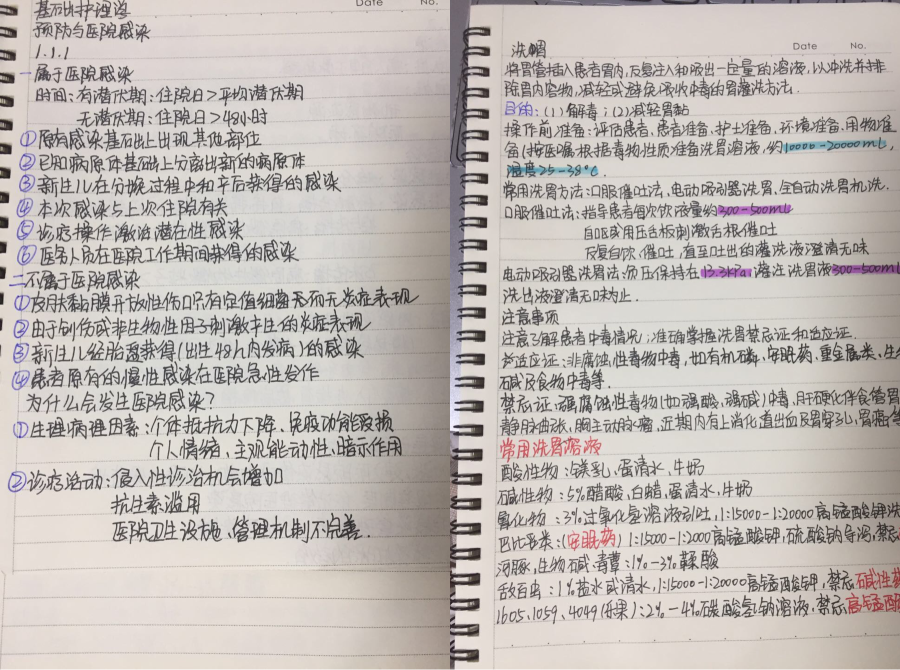 基础护理学
Date
No.
预防与医院感染
1.1.1
一属于医院感染
时间:有潜伏期:住院日>平均潜伏期
无潜伏期:住院日>48小时
①原有感染基础上出现其他部位
②已知病原体基础上分离出新的病原体
③新生儿在分娩过程中和产后获得的感染
④本次感染与上次住院有关
⑤诊疗操作激活潜在性感染
⑥医务人员在医院工作期间获得的感染
二不属于医院感染
①皮肤黏膜开放性伤口只有定值细菌无而无炎症表现
②由于创伤或非生物性因子刺激产生的炎症表现
③新生儿经胎盘获得(出生48h内发病)的感染
④患者原有的慢性感染在医院急性发作
为什么会发生医院感染?
①生理病理因素:个体抵抗力下降、免疫功能受损
个人情绪、主观能动性、暗示作用
②诊疗活动:侵入性诊治机会增加
抗生素滥用
医院卫生设施、管理机制不完善.
洗胃
Date
No.
将胃管插入患者胃内,反复注入和吸出一定量的溶液,以冲洗并排
除胃内容物,减轻或避免吸收中毒的胃灌洗方法.
目的:(1)解毒;(2)减轻胃黏
操作前准备:评估患者、患者准备、护士准备、环境准备、用物准
备(按医嘱根据毒物性质准备洗胃溶液,约10000-20000mL,
温度25-38℃
常用洗胃方法:口服催吐法、电动吸引器洗胃、全自动洗胃机洗.
口服催吐法:指导患者每次饮液量约300-500mL
自呕或用压舌板刺激舌根催吐
反复自饮、催吐,直至吐出的灌洗液澄清无味
电动吸引器洗胃法:负压保持在13.3kPa,灌注洗胃液300-500mL
洗出液澄清无味为止.
注意事项
注意了解患者中毒情况;准确掌握洗胃禁忌证和适应证.
适应证:非腐蚀性毒物中毒,如有机磷、安眠药、重金属类、生
碱及食物中毒等.
禁忌证:强腐蚀性毒物(如强酸、强碱)中毒、肝硬化伴食管胃
静脉曲张、胸主动脉瘤、近期内有上消化道出血及胃穿孔、胃癌等
常用洗胃溶液
酸性物:镁乳、蛋清水、牛奶
碱性物:5%醋酸、白醋、蛋清水、牛奶
氰化物:3%过氧化氢溶液引吐,1:15000-1:20000高锰酸钾洗
巴比妥类:(安眠药)1:15000-1:20000高锰酸钾,硫酸钠导泻,禁忌
河豚、生物碱、毒蕈:1%-3%鞣酸
敌百虫:1%盐水或清水,1:15000-1:20000高锰酸钾,禁忌碱性药
1605、1059、4049(乐果):2%-4%碳酸氢钠溶液,禁忌高锰酸